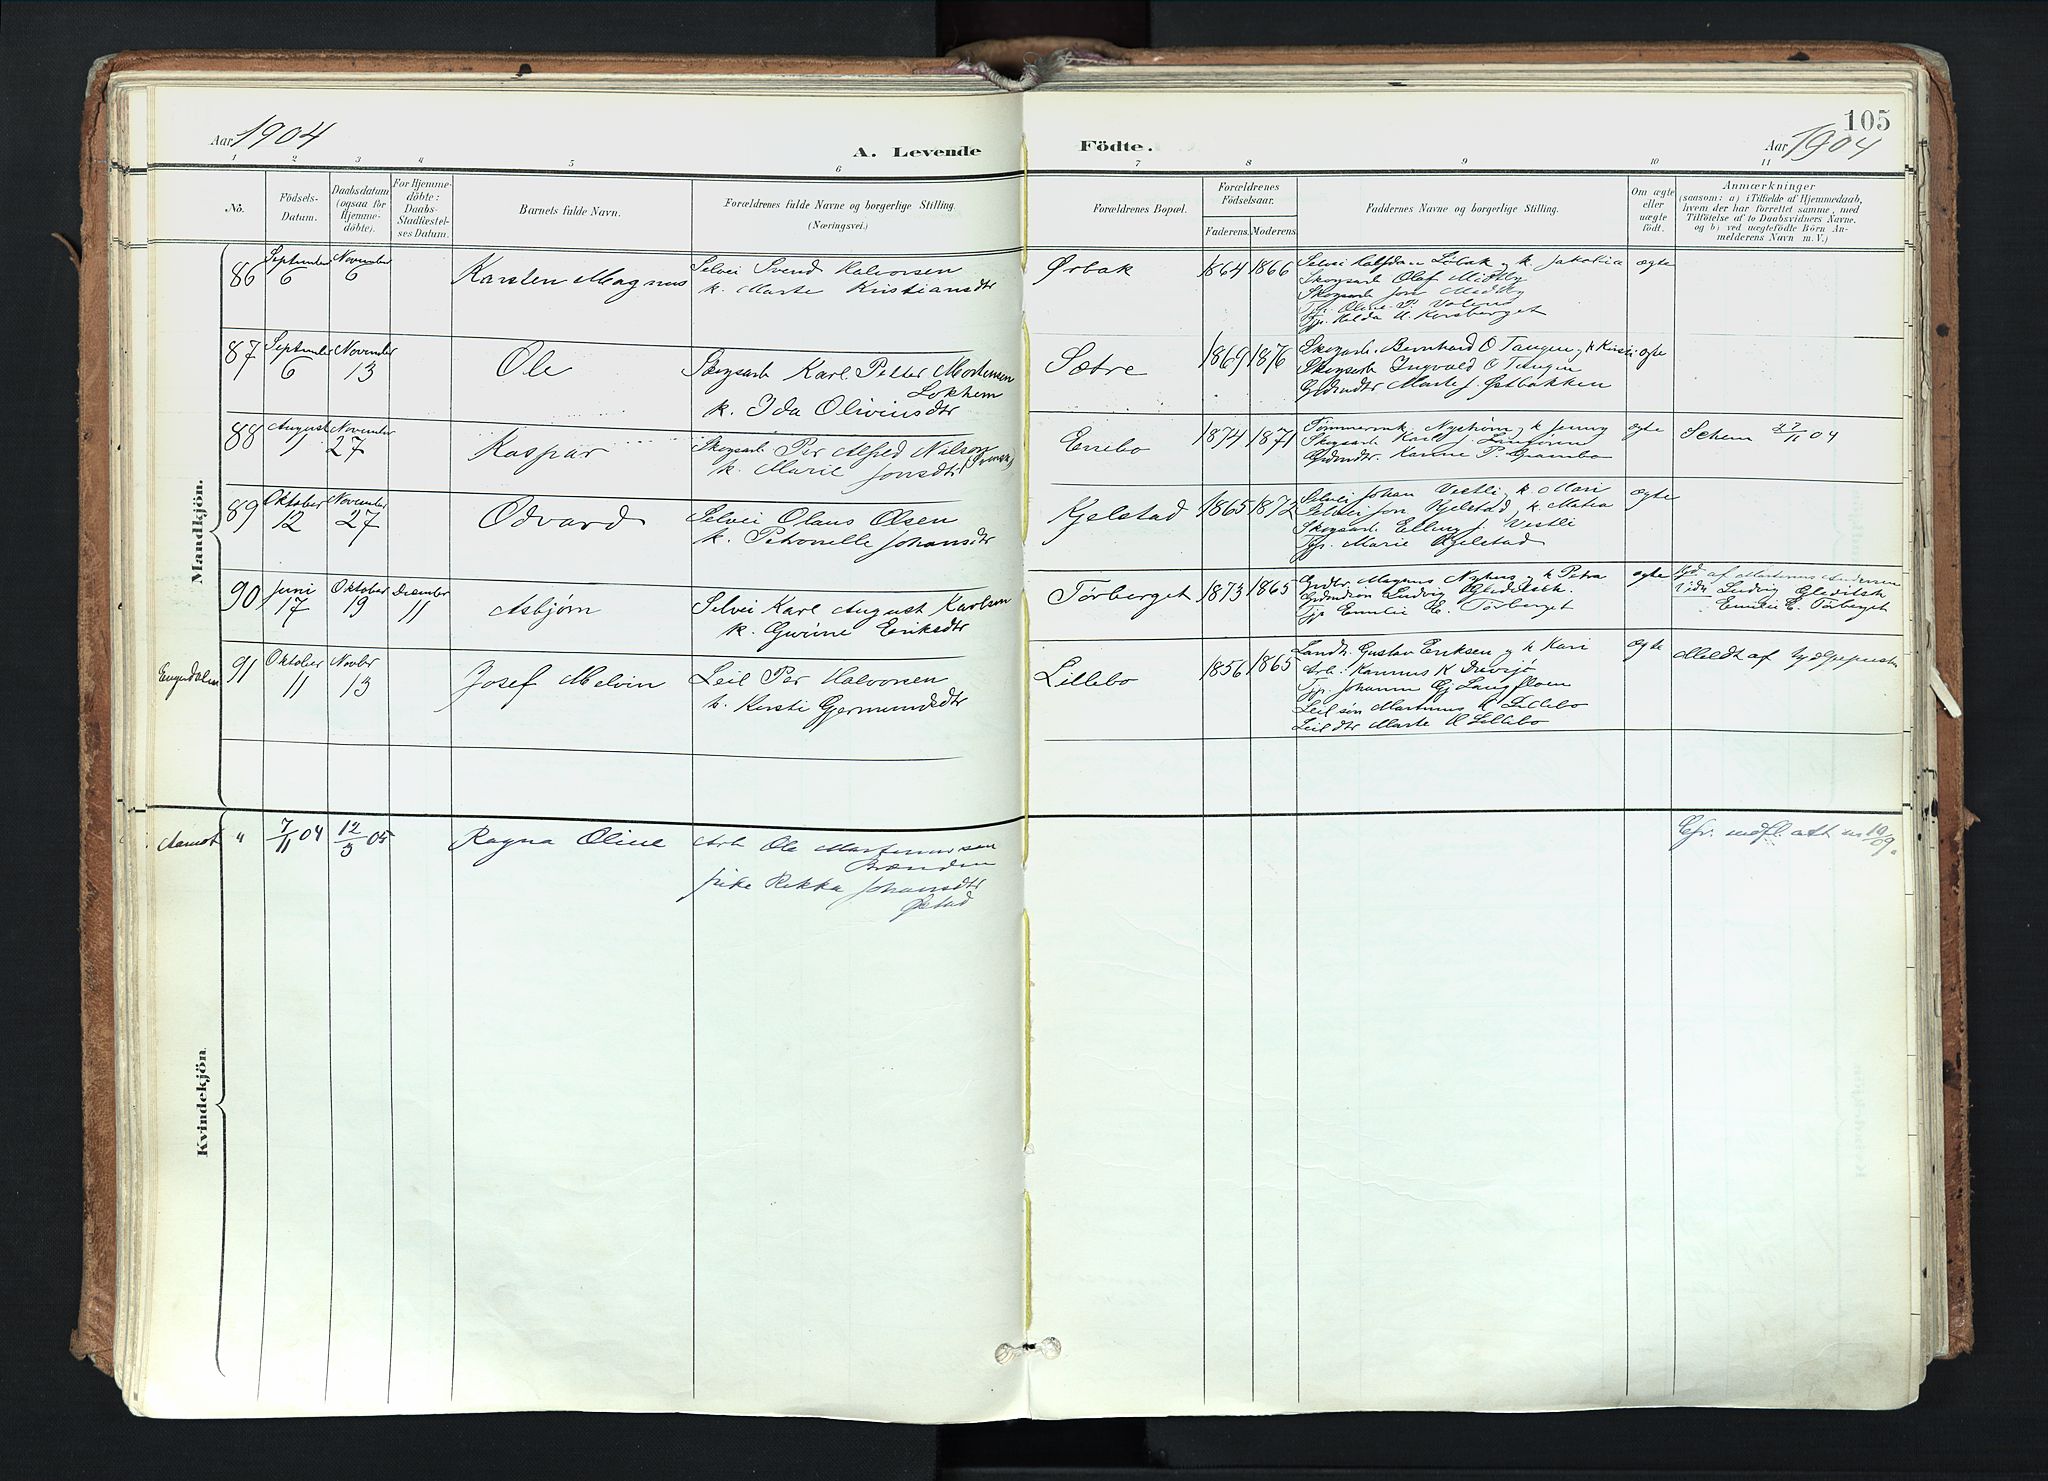 105
Aar 1904
A. Levende Födte.
Aar 1904
1 2 3 4 5 6 7 8 9 10 11
No.
Födsels-Datum.
Daabsdatum (ogsaa for Hjemme-döbte).
For Hjemme-döbte: Daabs-Stadfæstel-ses Datum.
Barnets fulde Navn.
Forældrenes fulde Navne og borgerlige Stilling. (Næringsvei.)
Forældrenes Bopæl.
Forældrenes Födselsaar.
Faderens. Moderens.
Faddernes Navne og borgerlige Stilling.
Om ægte eller uægte födt.
Anmærkninger
(saasom: a) i Tilfælde af Hjemmedaab, hvem der har forrettet samme, med Tilföielse af to Daabsvidners Navne. og b) ved uægtefödte Börn An-melderens Navn m. V.)
Mandkjön.
86 September 6 November 6 Karsten Magnus
Selvei Svend Halvorsen
k. Marte Kristiansdtr
Ørbak 1864 1866
Selvei Halfdan Løbak og k. Jakobia
Skogsarb Olaf Midtby
Skogsarb Jon Medby
Tjp. Oline P.
Tjp. Hilda H. Korsberget
ægte
87 September 6 November 13 Ole
Skogsarb Karl Petter Mortensen
Lokhem
k. Ida Oliviusdtr
Sætre 1869 1876
Skogsarb. Bernhard O Tangen og k Kirsti
Skogsarb Ingvald O Tangen
Grdmdtr Marte J. Østbakken
ægte
88 August 1 November 27 Kaspar
Skogsarb. Per Alfred Nilson
k. Marie Jonsdtr (Svensk)
Enebo 1874 1871
Tømmermk Nystrøm og k Jenny
Skogsarb Karl J. Langøien
Grdmdtr. Karine P. Grambo
ægte
Schem 27/11 04
89 Oktober 12 November 27 Odvard
Selvei Olaus Olsen
k. Petronelle Johansdtr
Kjelstad 1865 1872
Selvei Johan Vestli, k. Mari
Selvei Jon Kjelstad, k. Matea
Skogsarb Elling J. Vestli
Tjp. Marie Kjelstad
ægte
90 Juni 17 Oktober 19 December 11 Asbjørn
Selvei Karl August Karlsen
k. Gurine Eriksdtr
Tørberget 1873 1865
Grdbr Magnus Nyhus og k Petra
Grdmdsøn Ludvig Gleditsch
Tjp Emilie E. Tørberget
ægte
Hjd af Martinus Andersen
Vidn Ludvig Gleditsh
Emilie E. Tørberget
Engerdalen 91 Oktober 11 Novbr 13 Josef Melvin
Leil Per Halvorsen
k. Kirsti Gjermundsdtr
Lillebo 1856 1865
Landh. Gustav Eriksen og k Kari
Arb: Rasmus K Drevsjø
Tjp. Johanne Gj Langfloen
Leilsøn Martinus H Lillebo
Leildtr Marte H Lillebo
ægte
Meldt af Sydpepresten
Kvindekjön
Aamot " 7/11 04 12/3 05 Ragna Oline
Arb Ole Martinussen
Brænden
pike Rikka Johansdtr
Øestad
Cfr. indfl. att nr 19/09.